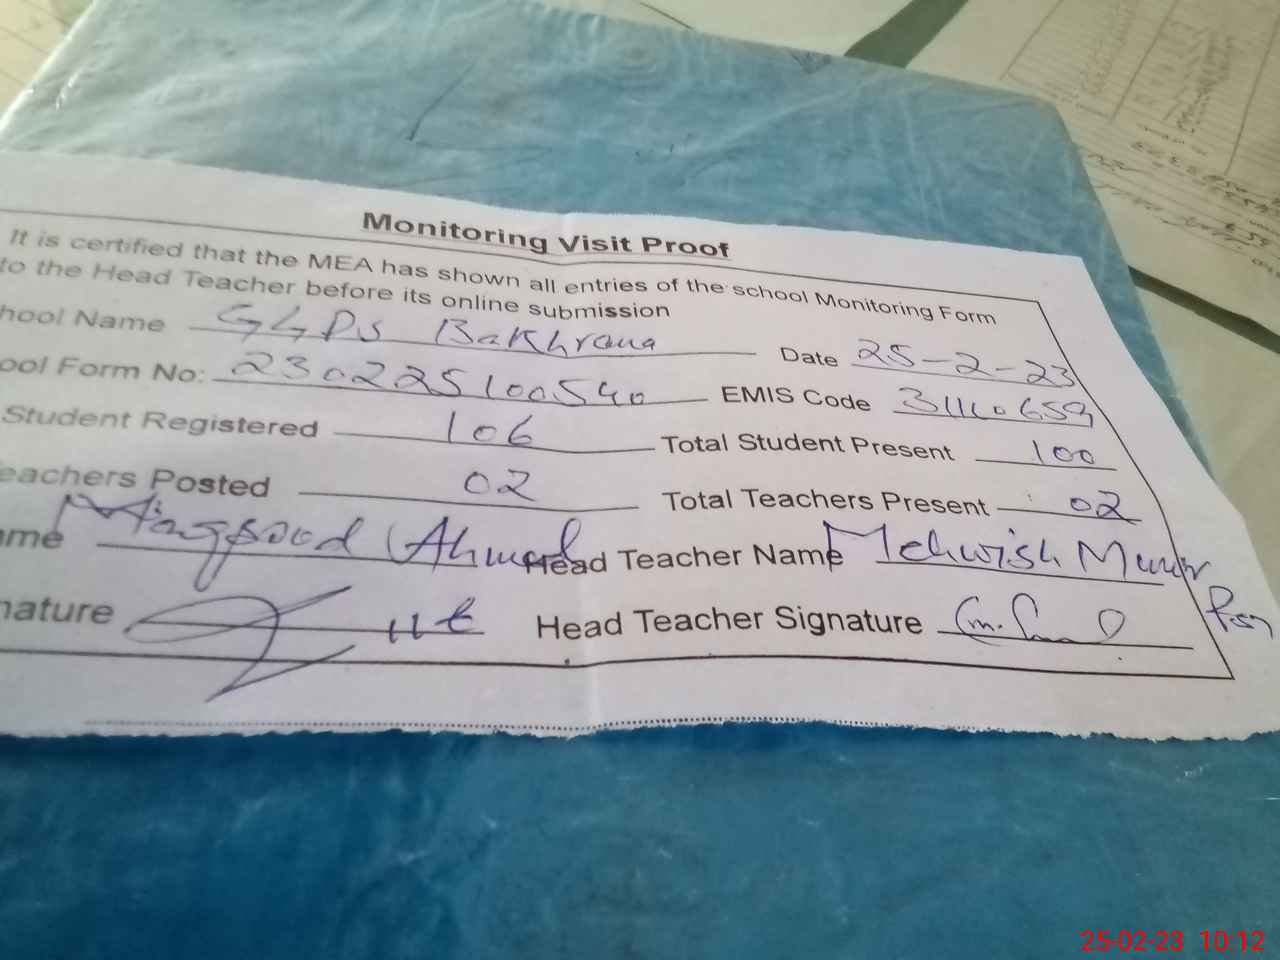 Monitoring Visit Proof
It is certified that the MEA has shown all entries of the school Monitoring Form
to the Head Teacher before its online submission
hool Name GGPS Bakhrana Date 25-2-23
ool Form No: 230225100540 EMIS Code 31110659
Student Registered 106 Total Student Present 100
eachers Posted 02 Total Teachers Present 02
ame Ahmed Head Teacher Name Mehwish Munir
nature Head Teacher Signature
25-02-23 10:12